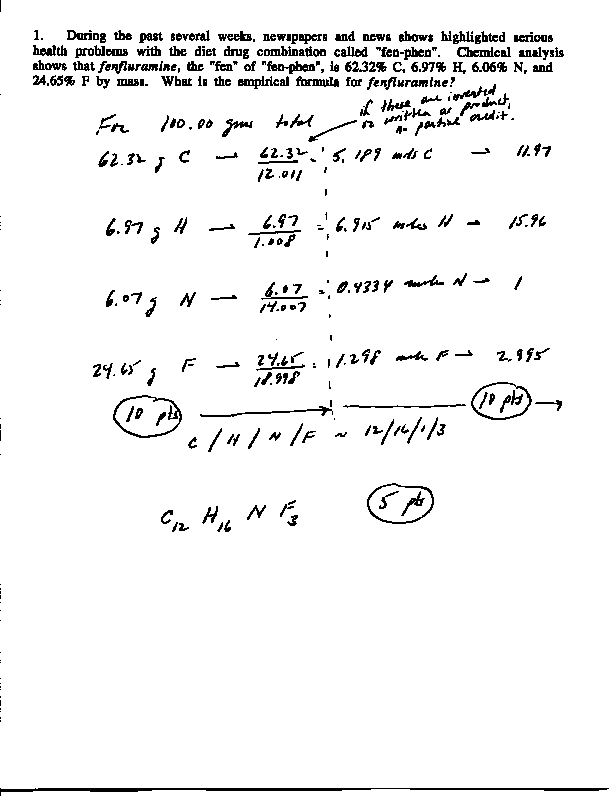 1. During the past several weeks, newspapers and news shows highlighted serious
health problems with the diet drug combination called "fen-phen". Chemical analysis
shows that fenfluramine, the "fen" of "fen-phen", is 62.32% C, 6.97% H, 6.06% N, and
24.65% F by mass. What is the empirical formula for fenfluramine?
if these are inverted
or written as product,
no partial credit.
For 100.00 gms total
62.32 g C → 62.32/12.011 = 5.189 mols C → 11.97
6.97 g H → 6.97/1.008 = 6.915 moles H → 15.96
6.07 g N → 6.07/14.007 = 0.4334 moles N → 1
24.65 g F → 24.65/18.998 = 1.298 mols F → 2.995
10 pts 10 pts
C / H / N / F ~ 12/16/1/3
C12 H16 N F3 5 pts